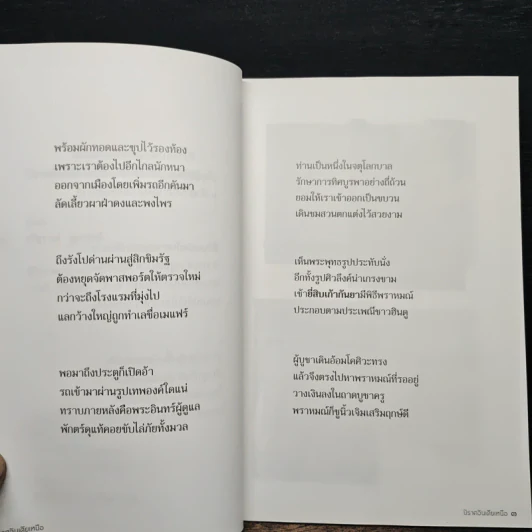 พร้อมผักทอดและซุปไว้รองท้อง
เพราะเราต้องไปอีกไกลนักหนา
ออกจากเมืองโดยเพิ่มรถอีกคันมา
ลัดเลี้ยวผาฝ่าดงและพงไพร
ถึงรังโปด่านผ่านสู่สิกขิมรัฐ
ต้องหยุดจัดพาสพอร์ตให้ตรวจใหม่
กว่าจะถึงโรงแรมที่มุ่งไป
แลกว้างใหญ่ถูกทำเลชื่อเมแฟร์
พอมาถึงประตูก็เปิดอ้า
รถเข้ามาผ่านรูปเทพองค์ใดแน่
ทราบภายหลังคือพระอินทร์ผู้ดูแล
พักตร์ดุแท้คอยขับไล่ภัยทั้งมวล
ท่านเป็นหนึ่งในจตุโลกบาล
รักษาการทิศบูรพาอย่างถี่ถ้วน
ยอมให้เราเข้าออกเป็นขบวน
เดินชมสวนตกแต่งไว้สวยงาม
เห็นพระพุทธรูปประทับนั่ง
อีกทั้งรูปศิวลึงค์น่าเกรงขาม
เช้ายี่สิบเก้ากันยามีพิธีพราหมณ์
ประกอบตามประเพณีชาวฮินดู
ผู้บูชาเดินอ้อมโคศิวะทรง
แล้วจึงตรงไปหาพราหมณ์ที่รออยู่
วางเงินลงในถาดบูชาครู
พราหมณ์ก็ชูนิ้วเจิมเสริมฤกษ์ดี
นิราศอินเดียเหนือ ๓